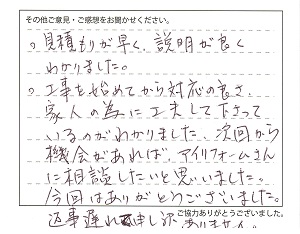 その他ご意見・ご感想をお聞かせください。
見積もりが早く、説明が良く
わかりました。
工事を始めてから対応の良さ、
家人の為に工夫して下さって
いるのがわかりました。次回から
機会があれば、アイリフォームさん
に相談したいと思いました。
今回はありがとうございました。
ご協力ありがとうございました。
返事遅れ申し訳ありません。